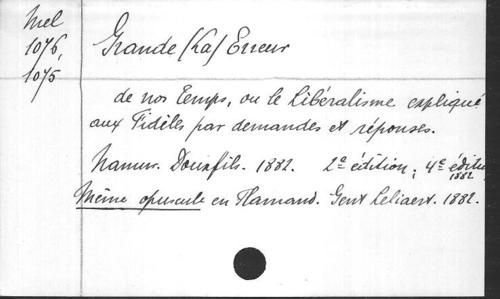 Mel
1076,
1075
Grande (La) Erreur
de nos Temps, ou le Libéralisme expliqué
aux Fidèles par demandes et réponses.
Namur. Douxfils. 1882. 2e édition; 4e édition
1882
Même opuscule en Flamand. Gent Leliaert. 1882.